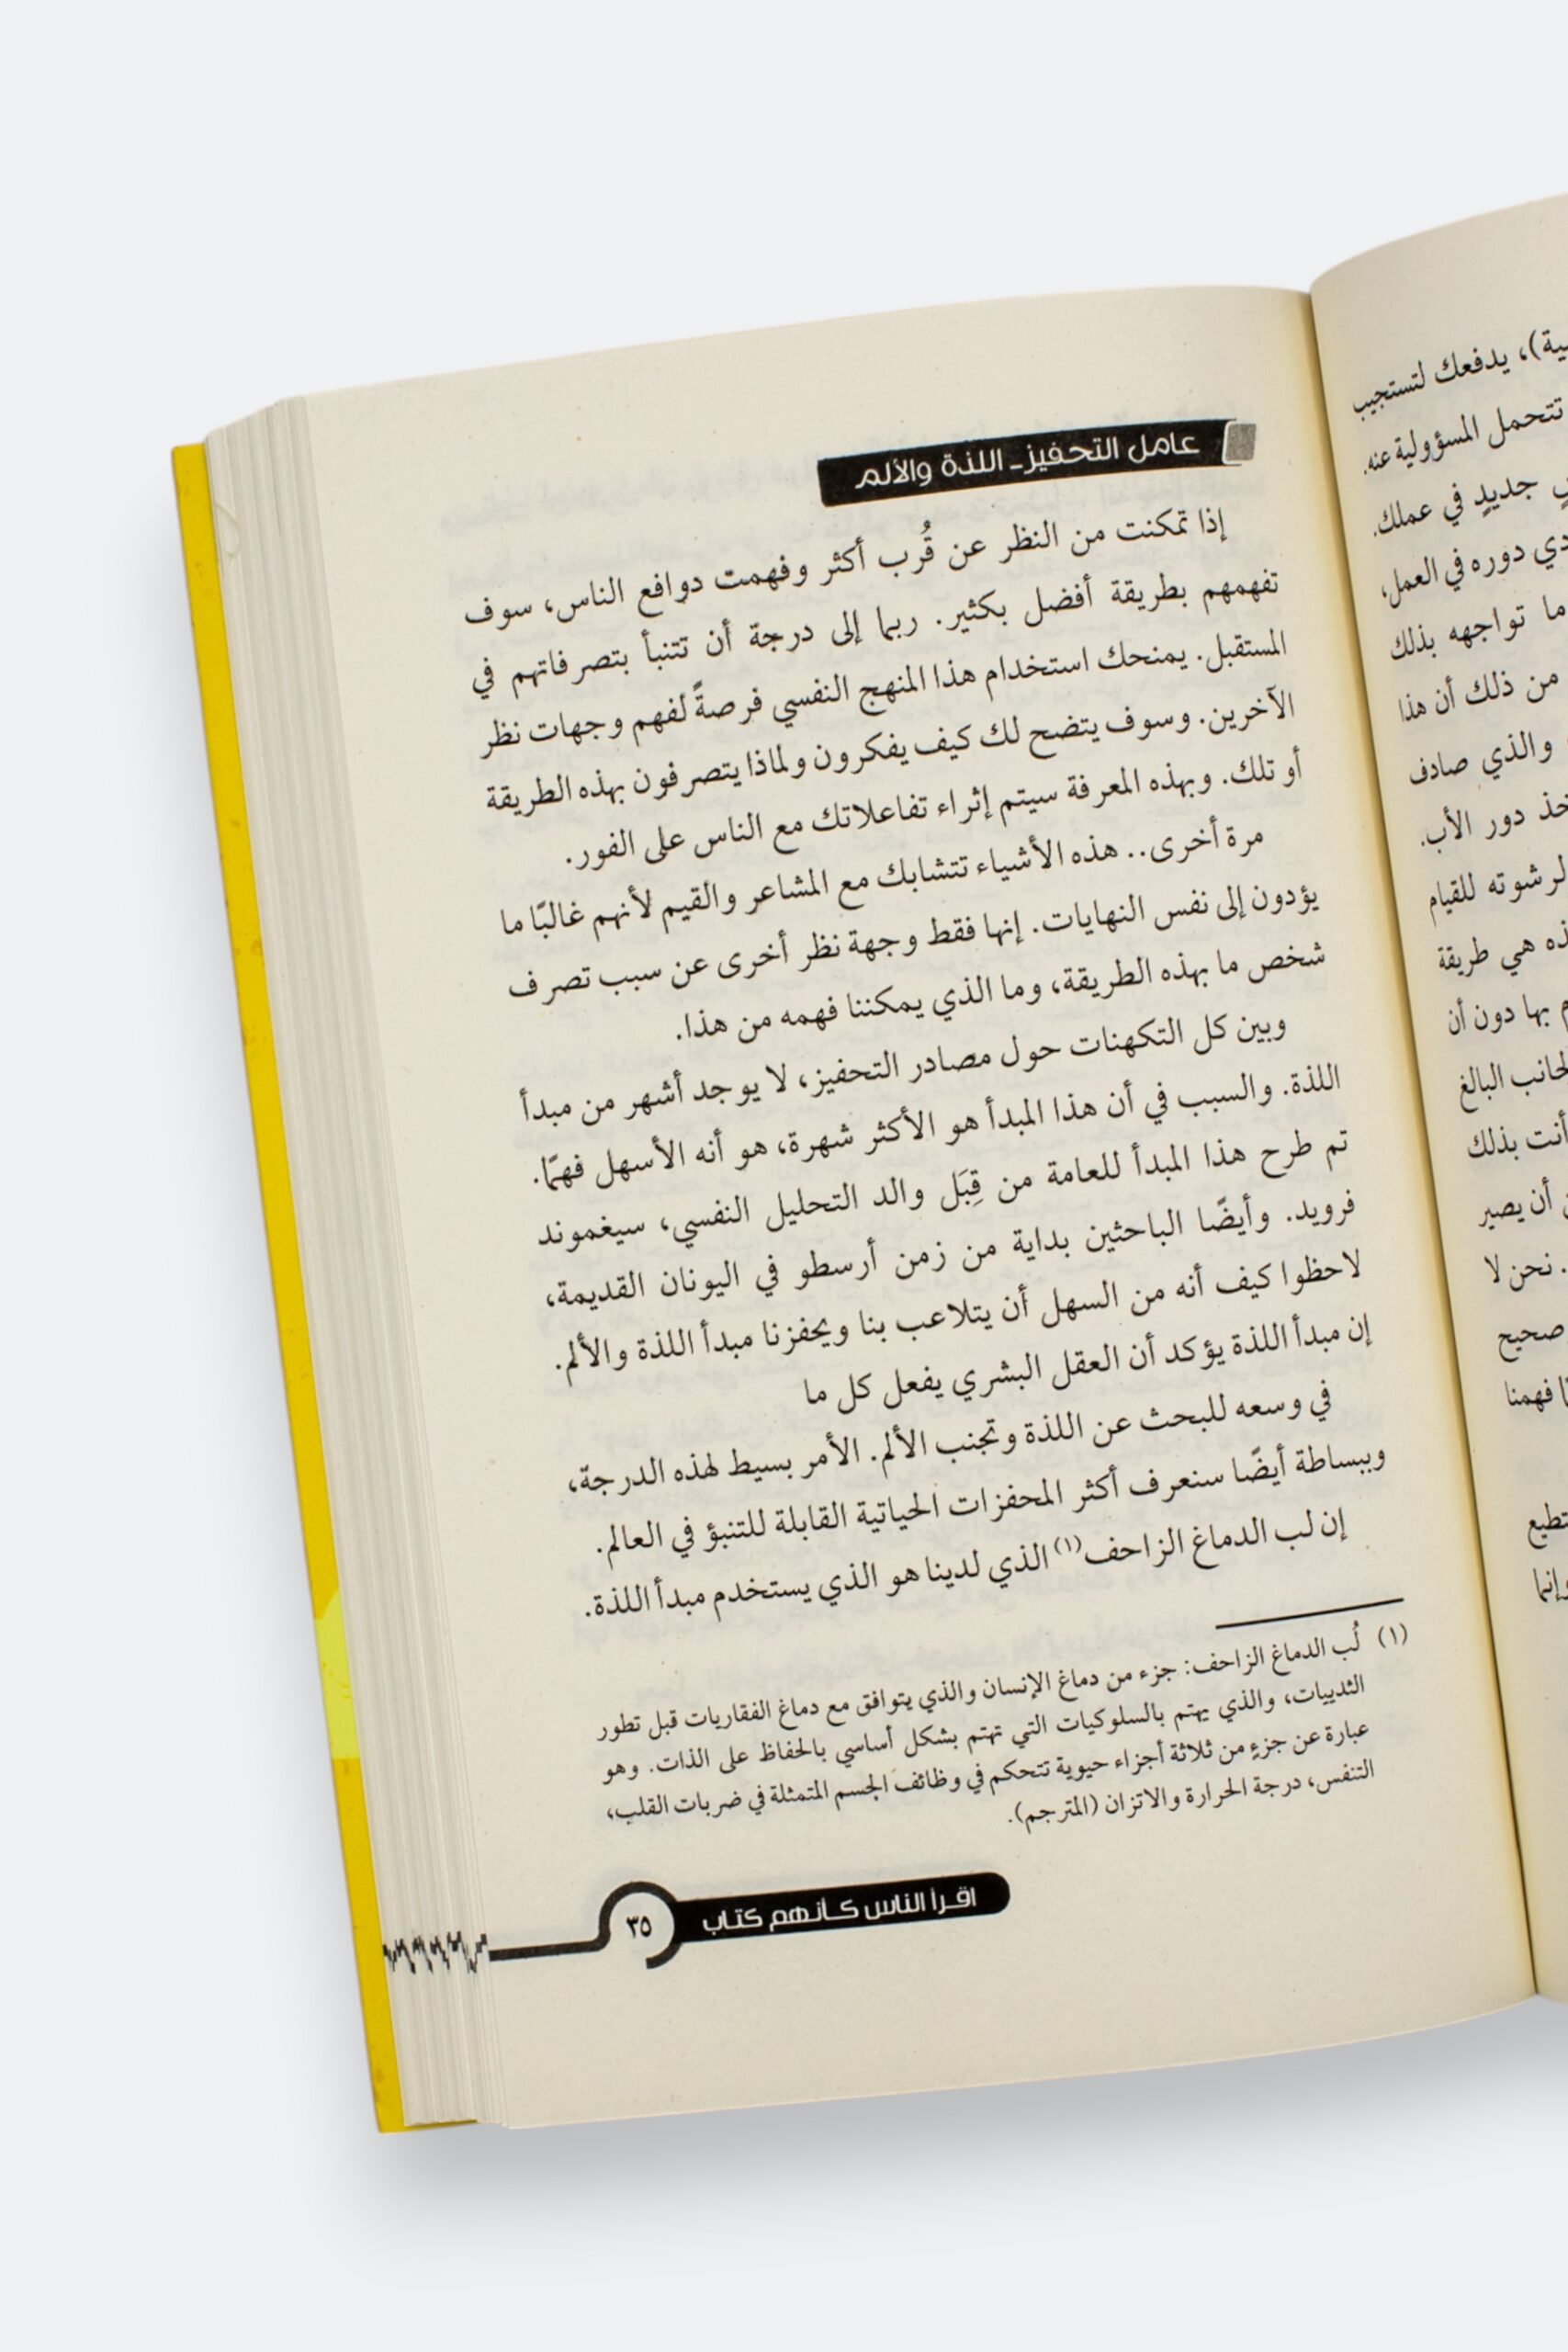 ية)، يدفعك لتستجيب
تتحمل المسؤولية عنه.
جديدٍ في عملك.
دوره في العمل،
ما تواجهه بذلك
من ذلك أن هذا
والذي صادف
دور الأب.
لرشوته للقيام
هي طريقة
بها دون أن
البالغ
أنت بذلك
أن يصير
. نحن لا
صحيح
فهمنا
وإنما
عامل التحفيز ـ اللذة والألم
إذا تمكنت من النظر عن قُرب أكثر وفهمت دوافع الناس، سوف
تفهمهم بطريقة أفضل بكثير. ربما إلى درجة أن تتنبأ بتصرفاتهم في
المستقبل. يمنحك استخدام هذا المنهج النفسي فرصةً لفهم وجهات نظر
الآخرين. وسوف يتضح لك كيف يفكرون ولماذا يتصرفون بهذه الطريقة
أو تلك. وبهذه المعرفة سيتم إثراء تفاعلاتك مع الناس على الفور.
مرة أخرى.. هذه الأشياء تتشابك مع المشاعر والقيم لأنهم غالبًا ما
يؤدون إلى نفس النهايات. إنها فقط وجهة نظر أخرى عن سبب تصرف
شخص ما بهذه الطريقة، وما الذي يمكننا فهمه من هذا.
وبين كل التكهنات حول مصادر التحفيز، لا يوجد أشهر من مبدأ
اللذة. والسبب في أن هذا المبدأ هو الأكثر شهرة، هو أنه الأسهل فهمًا.
تم طرح هذا المبدأ للعامة من قِبَل والد التحليل النفسي، سيغموند
فرويد. وأيضًا الباحثين بداية من زمن أرسطو في اليونان القديمة،
لاحظوا كيف أنه من السهل أن يتلاعب بنا ويحفزنا مبدأ اللذة والألم.
إن مبدأ اللذة يؤكد أن العقل البشري يفعل كل ما
في وسعه للبحث عن اللذة وتجنب الألم. الأمر بسيط لهذه الدرجة،
وببساطة أيضًا سنعرف أكثر المحفزات الحياتية القابلة للتنبؤ في العالم.
إن لب الدماغ الزاحف(١) الذي لدينا هو الذي يستخدم مبدأ اللذة.
(١) لُب الدماغ الزاحف: جزء من دماغ الإنسان والذي يتوافق مع دماغ الفقاريات قبل تطور
الثدييات، والذي يهتم بالسلوكيات التي تهتم بشكل أساسي بالحفاظ على الذات. وهو
عبارة عن جزءٍ من ثلاثة أجزاء حيوية تتحكم في وظائف الجسم المتمثلة في ضربات القلب،
التنفس، درجة الحرارة والاتزان (المترجم).
اقرأ الناس كأنهم كتاب
٣٥